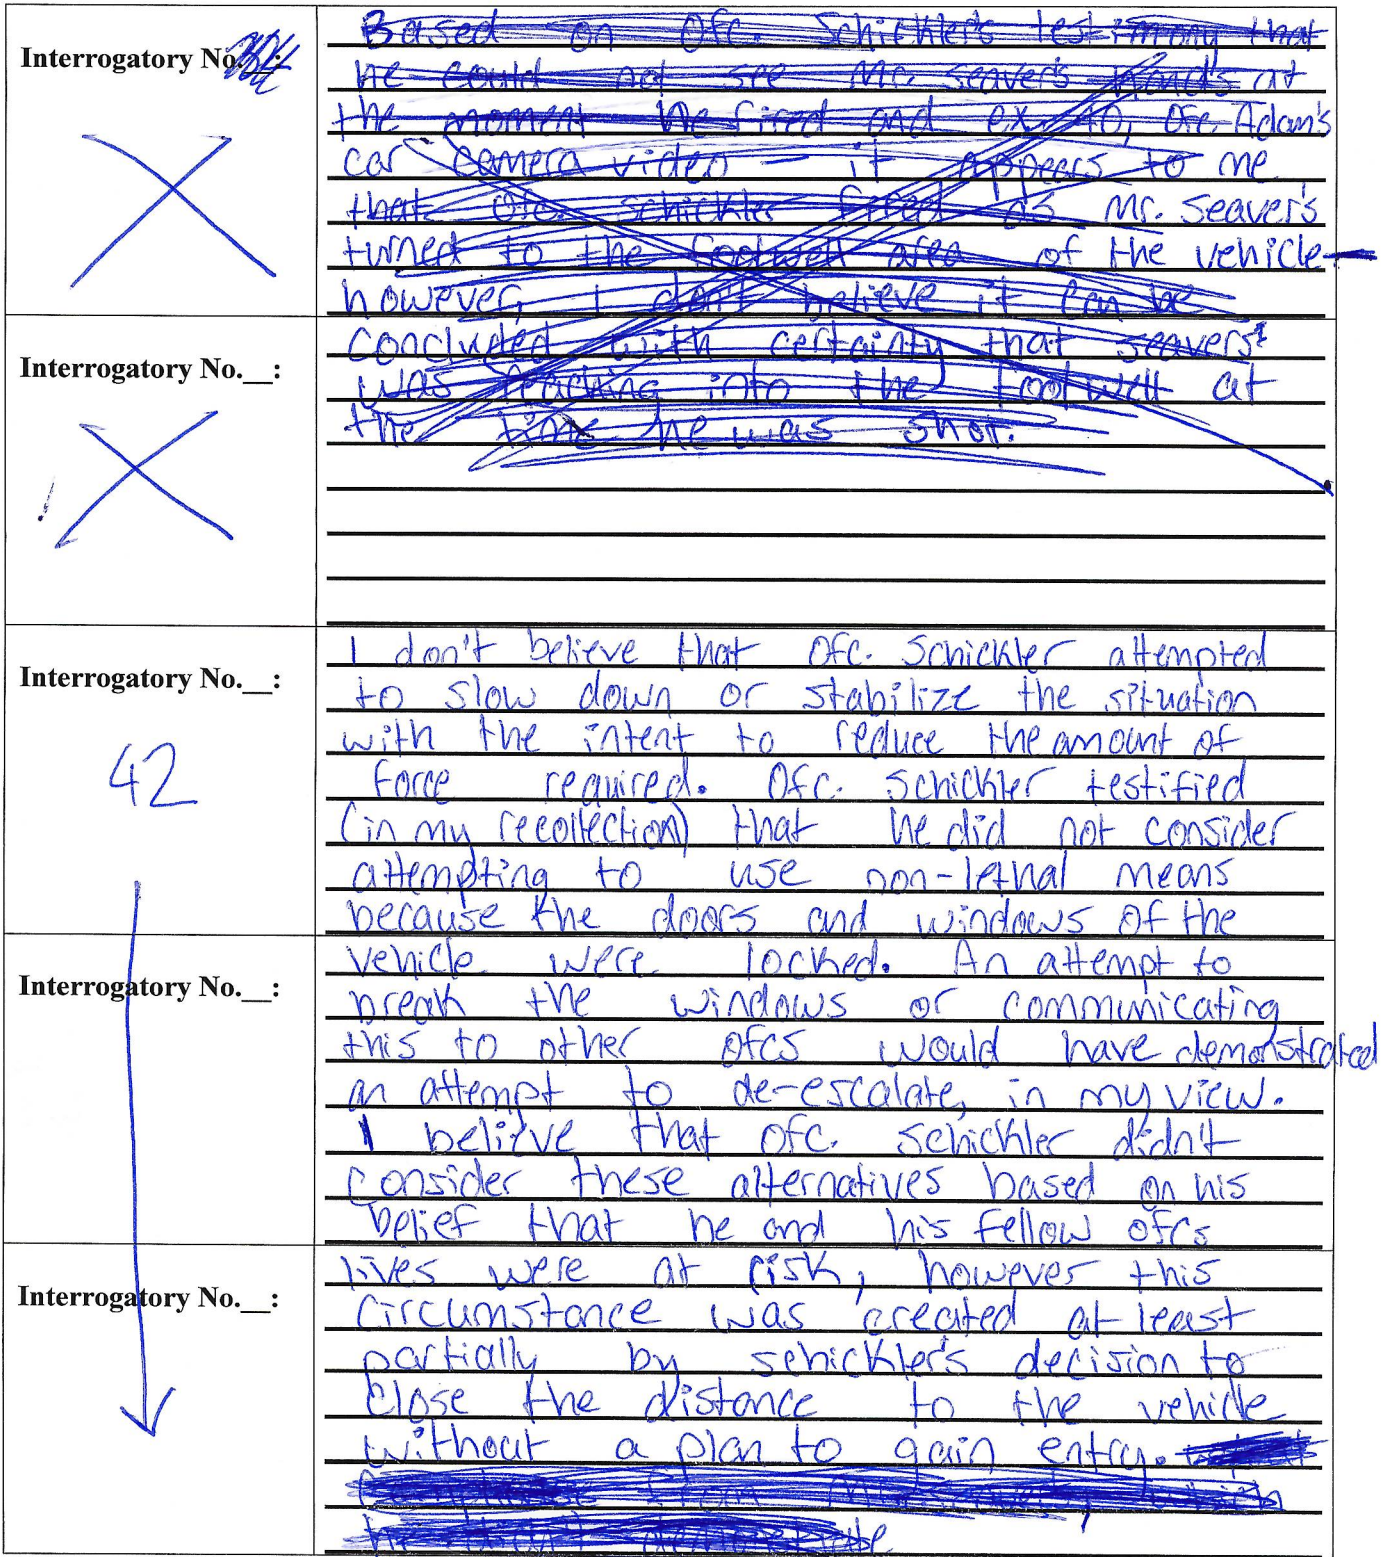 Interrogatory No.
Based on Ofc. Schickler's testimony that
he could not see Mr. Seavers hands at
the moment he fired and ex. 40, Ofc. Adam's
car camera video - it appears to me
that Ofc. Schickler fired as Mr. Seavers
turned to the footwell area of the vehicle-
however, I don't believe it can be
Interrogatory No.__:
concluded with certainty that seavers
was reaching into the footwell at
the time he was shot.
Interrogatory No.__:
42
I don't believe that Ofc. Schickler attempted
to slow down or stabilize the situation
with the intent to reduce the amount of
force required. Ofc. Schickler testified
(in my recollection) that he did not consider
attempting to use non-lethal means
because the doors and windows of the
Interrogatory No.__:
vehicle were locked. An attempt to
break the windows or communicating
this to other ofcs would have demonstrated
an attempt to de-escalate, in my view.
I believe that Ofc. Schickler didn't
consider these alternatives based on his
belief that he and his fellow ofcs
Interrogatory No.__:
lives were at risk, however this
circumstance was created at least
partially by schickler's decision to
close the distance to the vehicle
without a plan to gain entry.